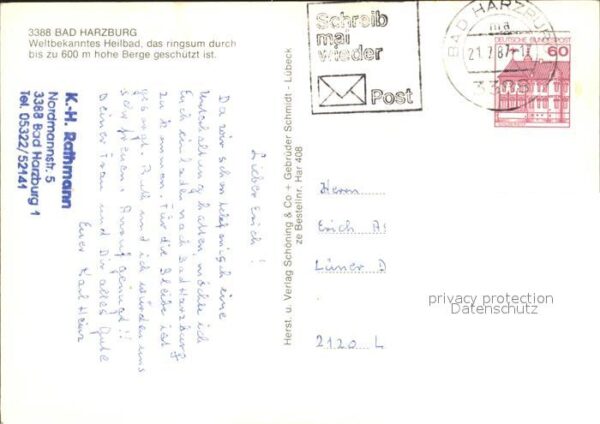 3388 BAD HARZBURG
Weltbekanntes Heilbad, das ringsum durch
bis zu 600 m hohe Berge geschützt ist.
Schreib
mal
wieder
Post
BAD HARZBURG
ma
21.7.87
3388
DEUTSCHE BUNDESPOST
60
K.-H. Rathmann
Nordmannstr. 5
3388 Bad Harzburg 1
Tel. 05322/52141
Lieber Erich!
Da wir schon telefonisch eine
Unterhaltung hatten möchte ich
Euch einladen nach Bad Harzburg
zu kommen. Für die Bleibe ist
gesorgt. Ruth und ich würden uns
sehr freuen. Anruf genügt!!
Deiner Frau und Dir alles Gute
Euer Karl Heinz
Herst. u. Verlag Schöning & Co + Gebrüder Schmidt - Lübeck
ze Bestellnr. Har 408
Herrn
Erich A
Lüner D
2120 L
privacy protection
Datenschutz